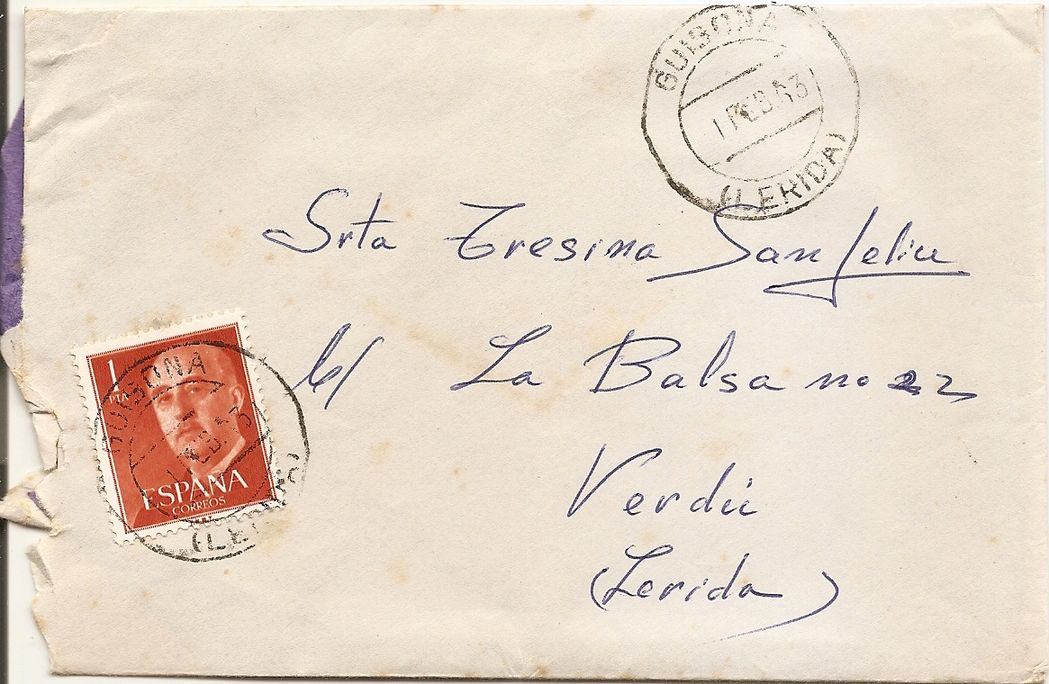 GUISONA
1 FEB 63
(LERIDA)
Srta Tresina Sanfeliu
c/ La Balsa no 22
Verdú
(Lerida)
1
PTA
ESPAÑA
CORREOS
GUISONA
(LERIDA)